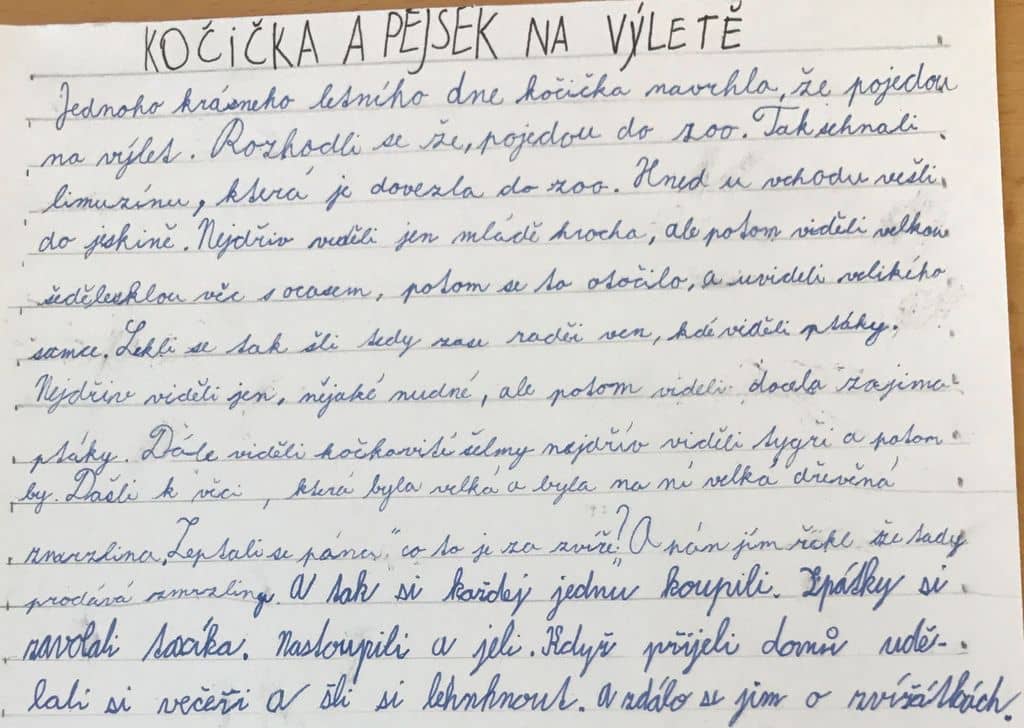 KOČIČKA A PEJSEK NA VÝLETĚ
Jednoho krásneho letního dne kočička navrhla, že pojedou
na výlet. Rozhodli se že, pojedou do zoo. Tak sehnali
limuzínu, která je dovezla do zoo. Hned u vchodu vešli
do jeskině. Nejdřiv viděli jen mládě hrocha, ale potom viděli velkou
věc s ocasem, potom se to otočilo, a uvideli velikého
samce. Lekli se tak šli tedy zase raděi ven, kdé viděli ptáky.
Nejdřiv viděli jen, nějaké nudné, ale potom viděli docela zajima
ptáky. Dále viděli kočkovité šelmy nejdřív viděli tygři a potom
by. Došli k věci, která byla velká a byla na ní velká dřevěná
zmrzlina. Zeptali se pána "co to je za zvíře? A pán jím řekl že tady
prodává zmrzliny. A tak si každej jednu koupili. Zpátky si
zavolali taxíka. Nastoupili a jeli. Když přijeli domů udě-
lali si večeři a šli si lehnknout. A zdálo se jim o zvířátkách.